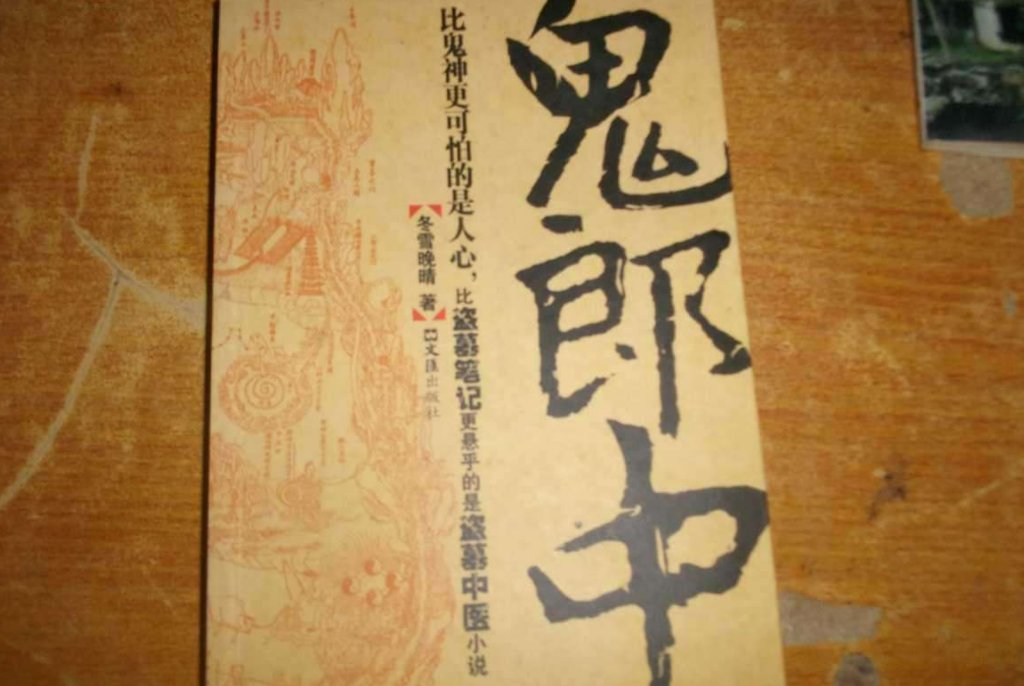 鬼郎中
比鬼神更可怕的是人心，比盗墓笔记更悬乎的是盗墓中医小说
冬雪晚晴 著
文匯出版社